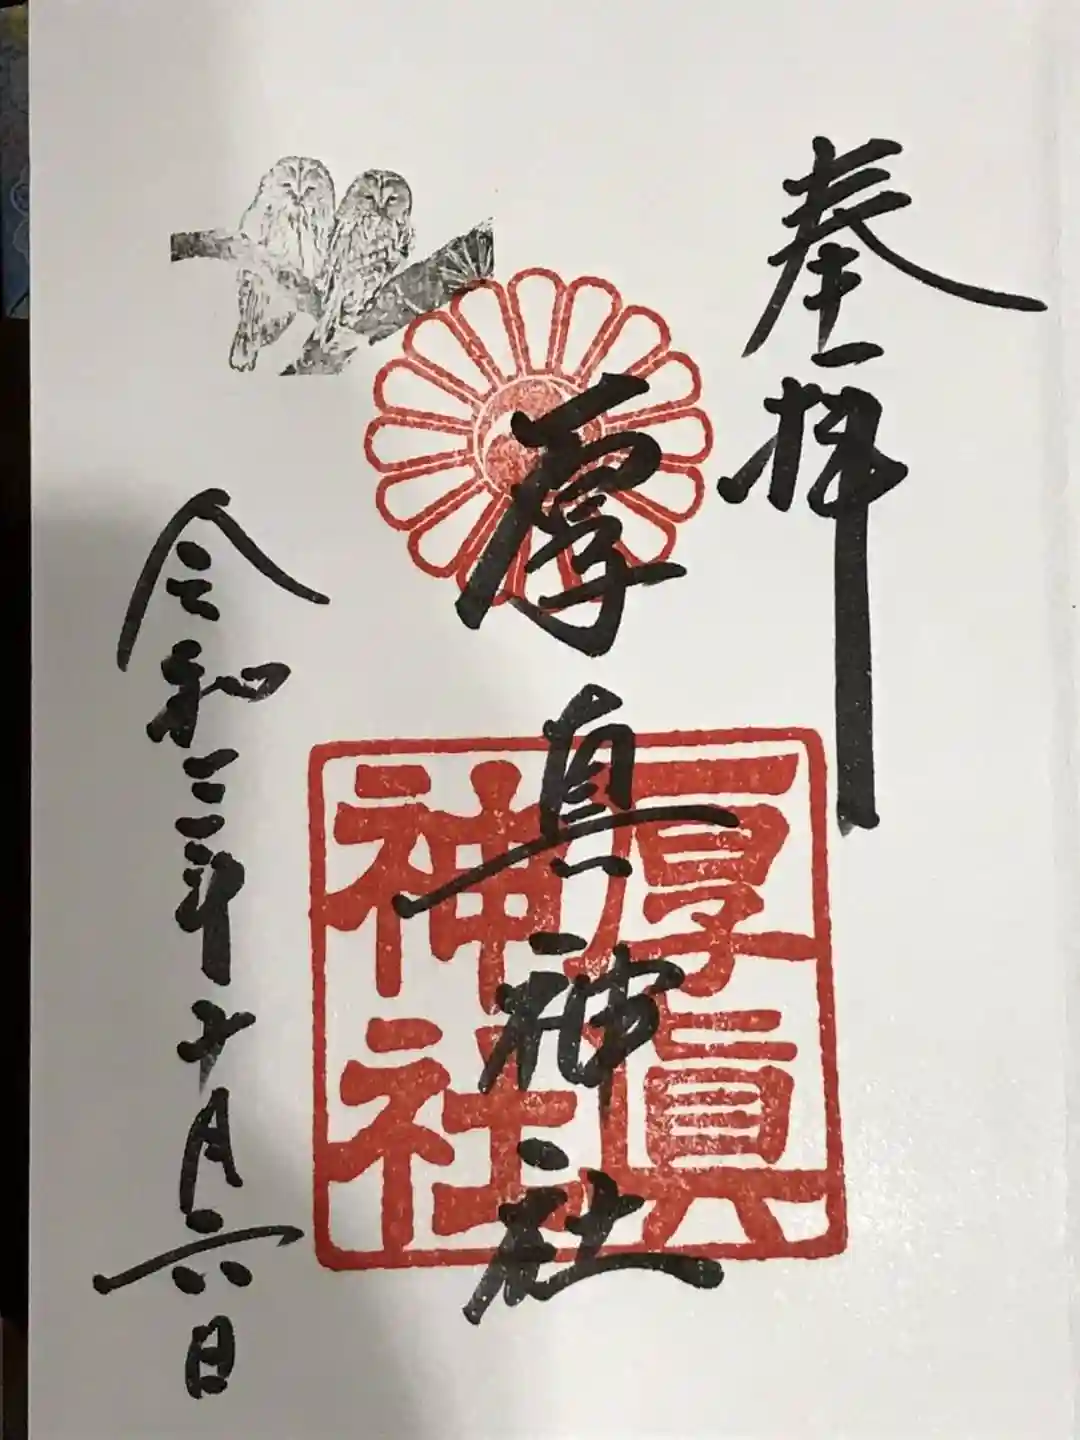 奉拝
厚真神社
厚眞
神社
令和三年十月六日